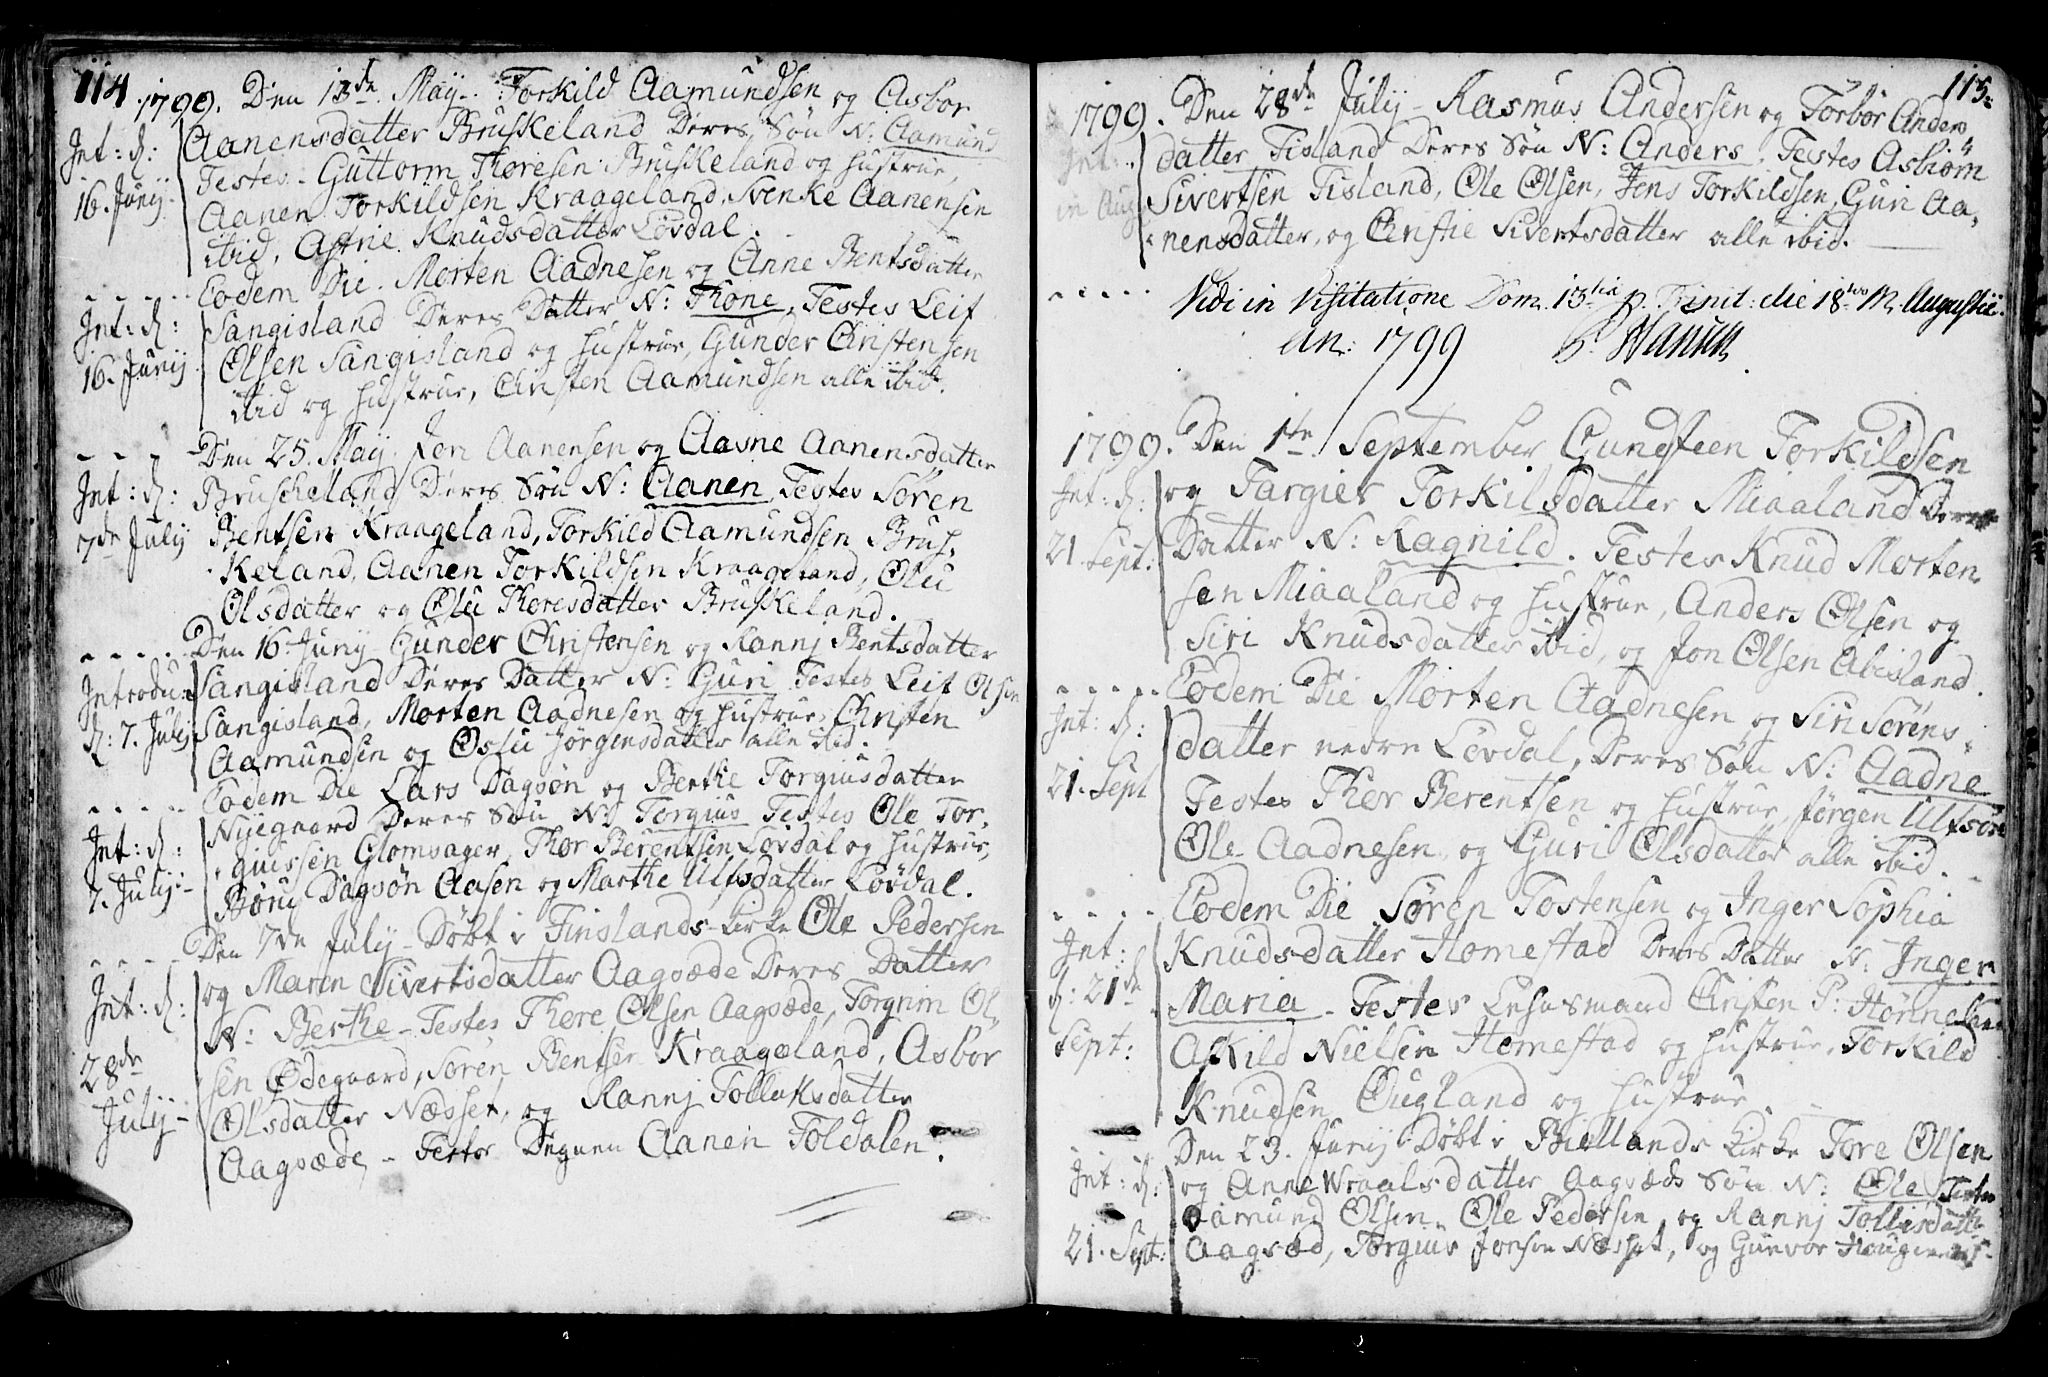 114
1799. Den 13de May. Torkild Aamundsen og Asbor
Int: d: Aanensdatter Bruskeland Deres Søn N: Aamund
Testes Guttorm Thoresen Bruskeland og Hustrue,
16. Junij Aanen Torkildsen Kraageland, Svenke Aanensen
ibid, Astrie Knudsdatter Løvdal.
Eodem Die. Morten Aadnesen og Anne Bentsdatter
Int: d: Sangisland Deres Datter N: Thone, Testes Leif
16. Junij Olsen Sangisland og Hustrue, Gunder Christensen
ibid og Hustrue, Christen Aamundsen alle ibid.
Den 25. May. Jon Aanensen og Aavne Aanensdatter
Int: d: Bruskeland Deres Søn N: Aanen Testes Søren
7de Julij Bentsen Kraageland, Torkild Aamundsen Brus,
keland, Aanen Torkildsen Kraageland, Olu
Olsdatter og Olu Thoresdatter Bruskeland.
Den 16 Junij Gunder Christensen og Rannj Bentsdatter
Introdu: Sangisland Deres Datter N: Guri Testes Leif Olsen
d: 7. Julij Sangisland, Morten Aadnesen og Hustrue, Christen
Aamundsen og Ossu Jørgensdatter alle ibid.
Eodem Die Lars Dagsøn og Berthe Torgiusdatter
Int: d: Nyegaard Deres Søn N: Torgius Testes Ole Tor,
giussen Glomsager, Thor Berentsen Løvdal og Hustrue,
7. Julij Børu Dagsøn Aasen og Marthe Ulfsdatter Løvdal.
Den 7de Julij Døbt i Finslands Kirke Ole Pedersen
Int: d: og Maren Sivertsdatter Aagsæde Deres Datter
N: Berthe Testes Thore Olsen Aagsæde, Torgrim Ol,
28de sen Ødegaard, Søren Bentsen Kraageland, Asbor
Julij Olsdatter Næsset, og Rannj Tolluksdatter
Aagsæde, Testes Degnen Aanen Foldalen.
115.
1799. Den 28de Julij Rasmus Andersen og Torbor Anders
Int: datter Fisland Deres Søn N: Anders. Testes Asbiørn
in Aug Sivertsen Fisland, Ole Olsen, Jens Torkildsen, Guri Aa,
nensdatter, og Christie Sivertsdatter alle ibid.
Vidi in Visitatione Dom. 13tia p. Trinit: die 18tvo M. Augustii.
an: 1799 P. Hansen
1799. Den 1te September Gundsteen Torkildsen
Int: d: og Targier Torkilsdatter Miaaland Deres
21. Sept: Datter N: Ragnild. Testes Knud Morten
sen Miaaland og Hustrue, Anders Olsen og
Siri Knudsdatter ibid, og Jon Olsen Abisland.
Eodem Die Morten Aadnesen og Siri Sørens,
Int: d: datter nedre Løvdal, Deres Søn N: Aadne
21. Sept Testes Thor Berentsen og Hustrue, Jørgen Ulfsøn
Ole Aadnesen og Guri Olsdatter alle ibid.
Eodem Die Søren Tostensen og Inger Sophia
Int: Knudsdatter Homestad Deres Datter N: Inger
d: 21de Maria Testes Lensmand Christen P: Hønne
Sept: Askild Nielsen Homestad og Hustrue, Torkild
Knudsen Øugland og Hustrue.
Den 23. Junij Døbt i Biellands Kirke Tore Olsen
Int: d: og Anne Wraalsdatter Aagsæde Søn N: Ole Testes
Aamund Olsen, Ole Pedersen, og Rannj Tollisdatter
21. Sept: Aagsæd, Torgius Jonsen Næsset, og Gunvor